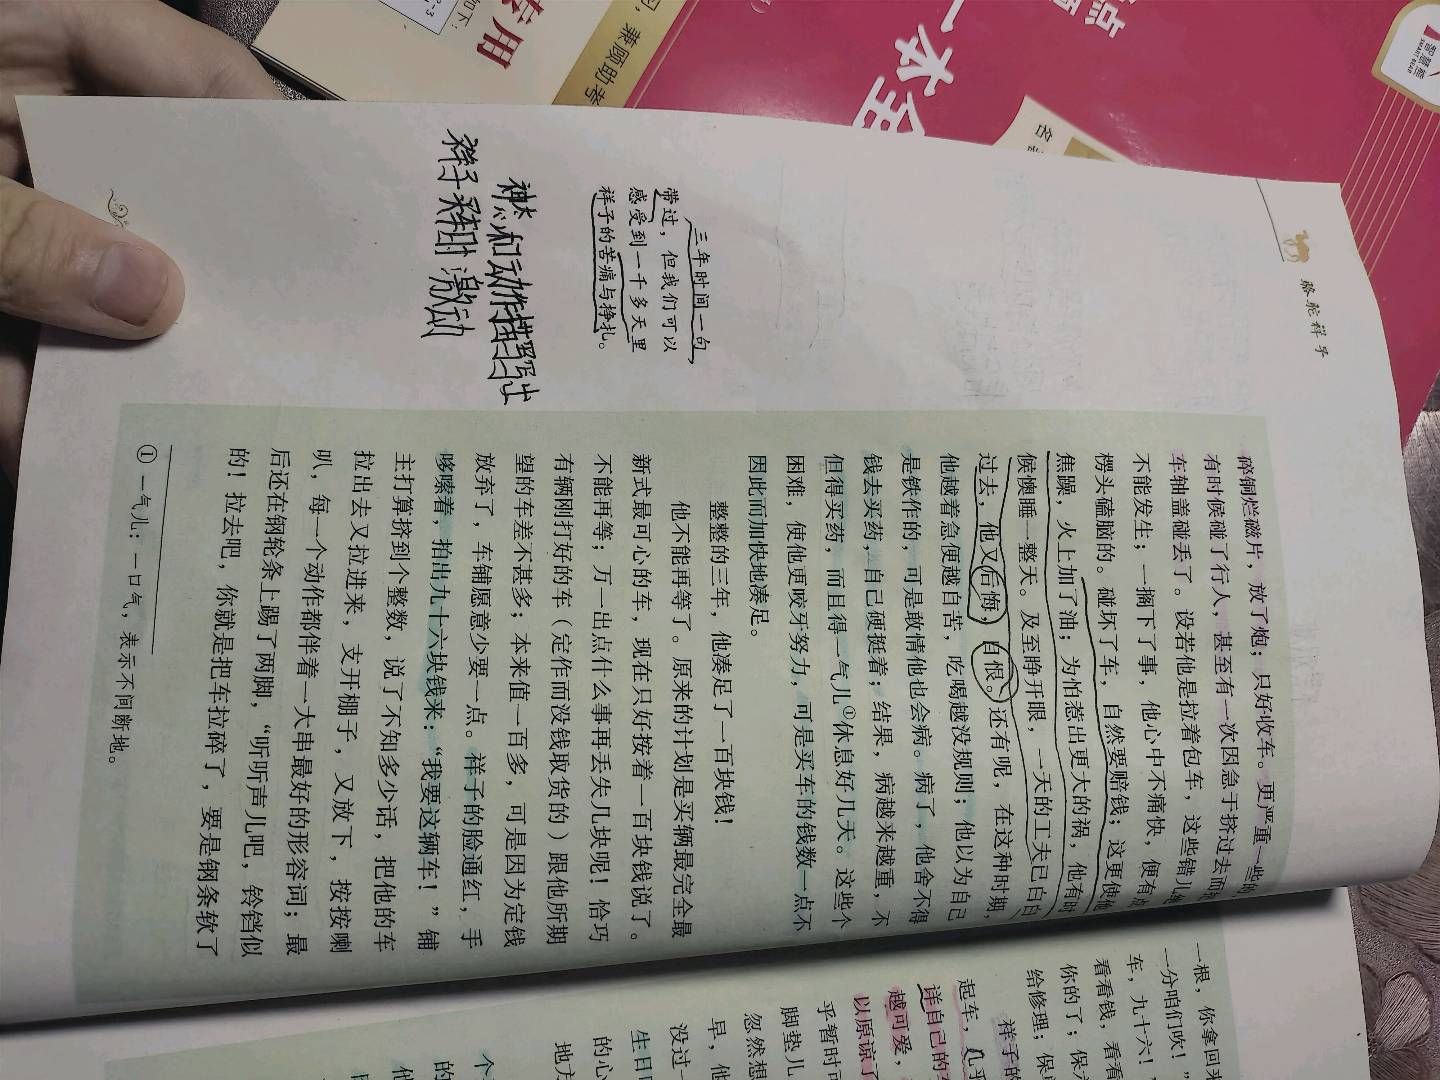 骆驼祥子
碎铜烂磁片，放了炮；只好收车。更严重一些的
有时候碰了行人，甚至有一次因急于挤过去而把
车轴盖碰丢了。设若他是拉着包车，这些错儿绝
不能发生；一搁下了事，他心中不痛快，便有点
楞头磕脑的。碰坏了车，自然要赔钱；这更使他
焦躁，火上加了油；为怕惹出更大的祸，他有时
候懊睡一整天。及至睁开眼，一天的工夫已白白
过去，他又后悔，自恨。还有呢，在这种时期，
他越着急便越自苦，吃喝越没规则；他以为自己
是铁作的，可是敢情他也会病。病了，他舍不得
钱去买药，自己硬挺着；结果，病越来越重，不
但得买药，而且得一气儿①休息好几天。这些个
困难，使他更咬牙努力，可是买车的钱数一点不
因此而加快地凑足。
整整的三年，他凑足了一百块钱！
他不能再等了。原来的计划是买辆最完全最
新式最可心的车，现在只好按着一百块钱说了。
不能再等；万一出点什么事再丢失几块呢！恰巧
有辆刚打好的车（定作而没钱取货的）跟他所期
望的车差不甚多；本来值一百多，可是因为定钱
放弃了，车铺愿意少要一点。祥子的脸通红，手
哆嗦着，拍出九十六块钱来：“我要这辆车！”铺
主打算挤到个整数，说了不知多少话，把他的车
拉出去又拉进来，支开棚子，又放下，按按喇
叭，每一个动作都伴着一大串最好的形容词；最
后还在钢轮条上踢了两脚，“听听声儿吧，铃铛似
的！拉去吧，你就是把车拉碎了，要是钢条软了
① 一气儿：一口气，表示不间断地。
三年时间一句
带过，但我们可以
感受到一千多天里
祥子的苦痛与挣扎。
神态和动作描写写出
祥子 激动
一根，你拿回来
一分咱们吹！
车，九十六！
看看钱，看看
你的了；保
给修理；保
祥子的
起车，几乎
详自己的车
越可爱，
以原谅了
乎暂时可
脚垫儿
忽然想
早，他
没过
生日
的心
地方
个
的
他
专用
兼顾助考
一本全
点
智慧熊
SMART BEAR